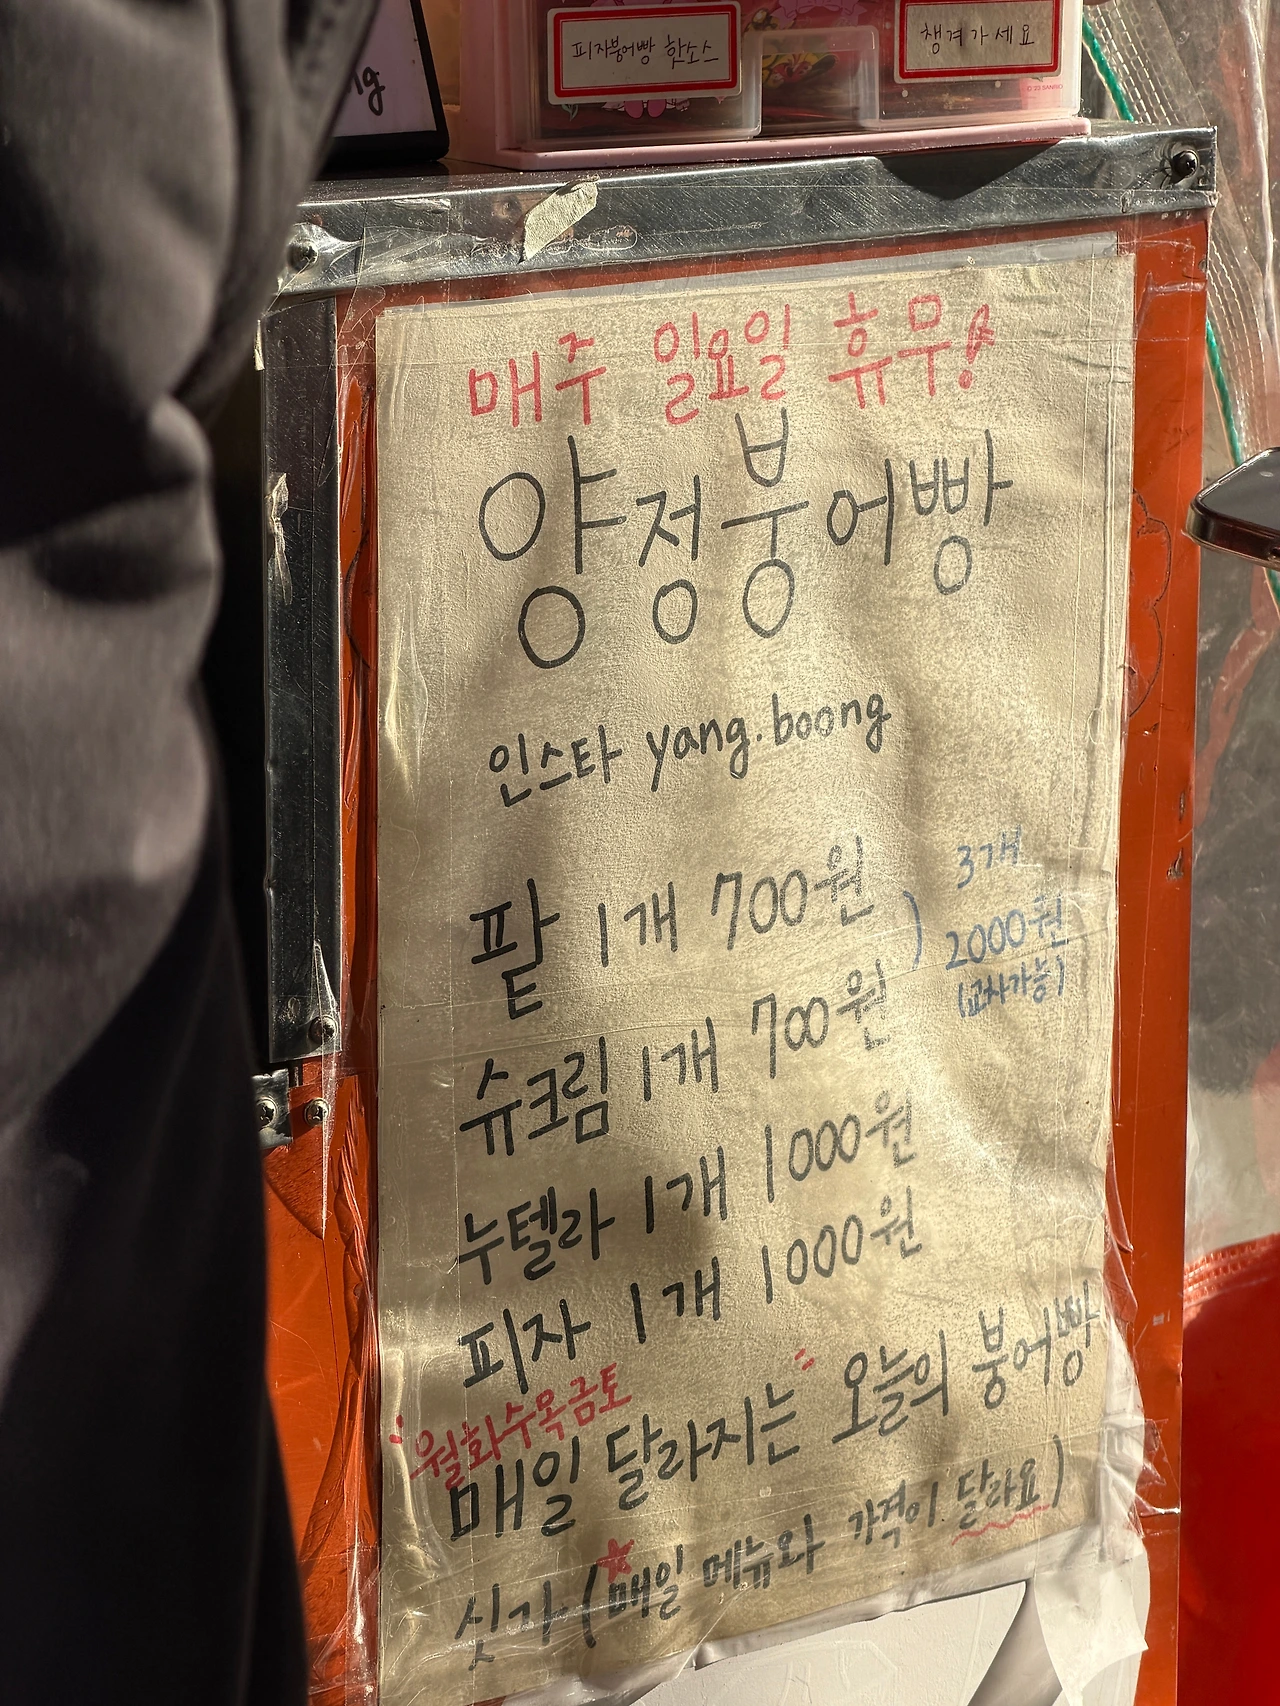 ng
피자붕어빵 핫소스
챙겨가세요
매주 일요일 휴무!
양정붕어빵
인스타 yang.boong
팥 1개 700원
슈크림 1개 700원
3개
2000원
(교차가능)
누텔라 1개 1000원
피자 1개 1000원
월화수목금토
매일 달라지는 오늘의 붕어빵
싯가 (매일 메뉴와 가격이 달라요)